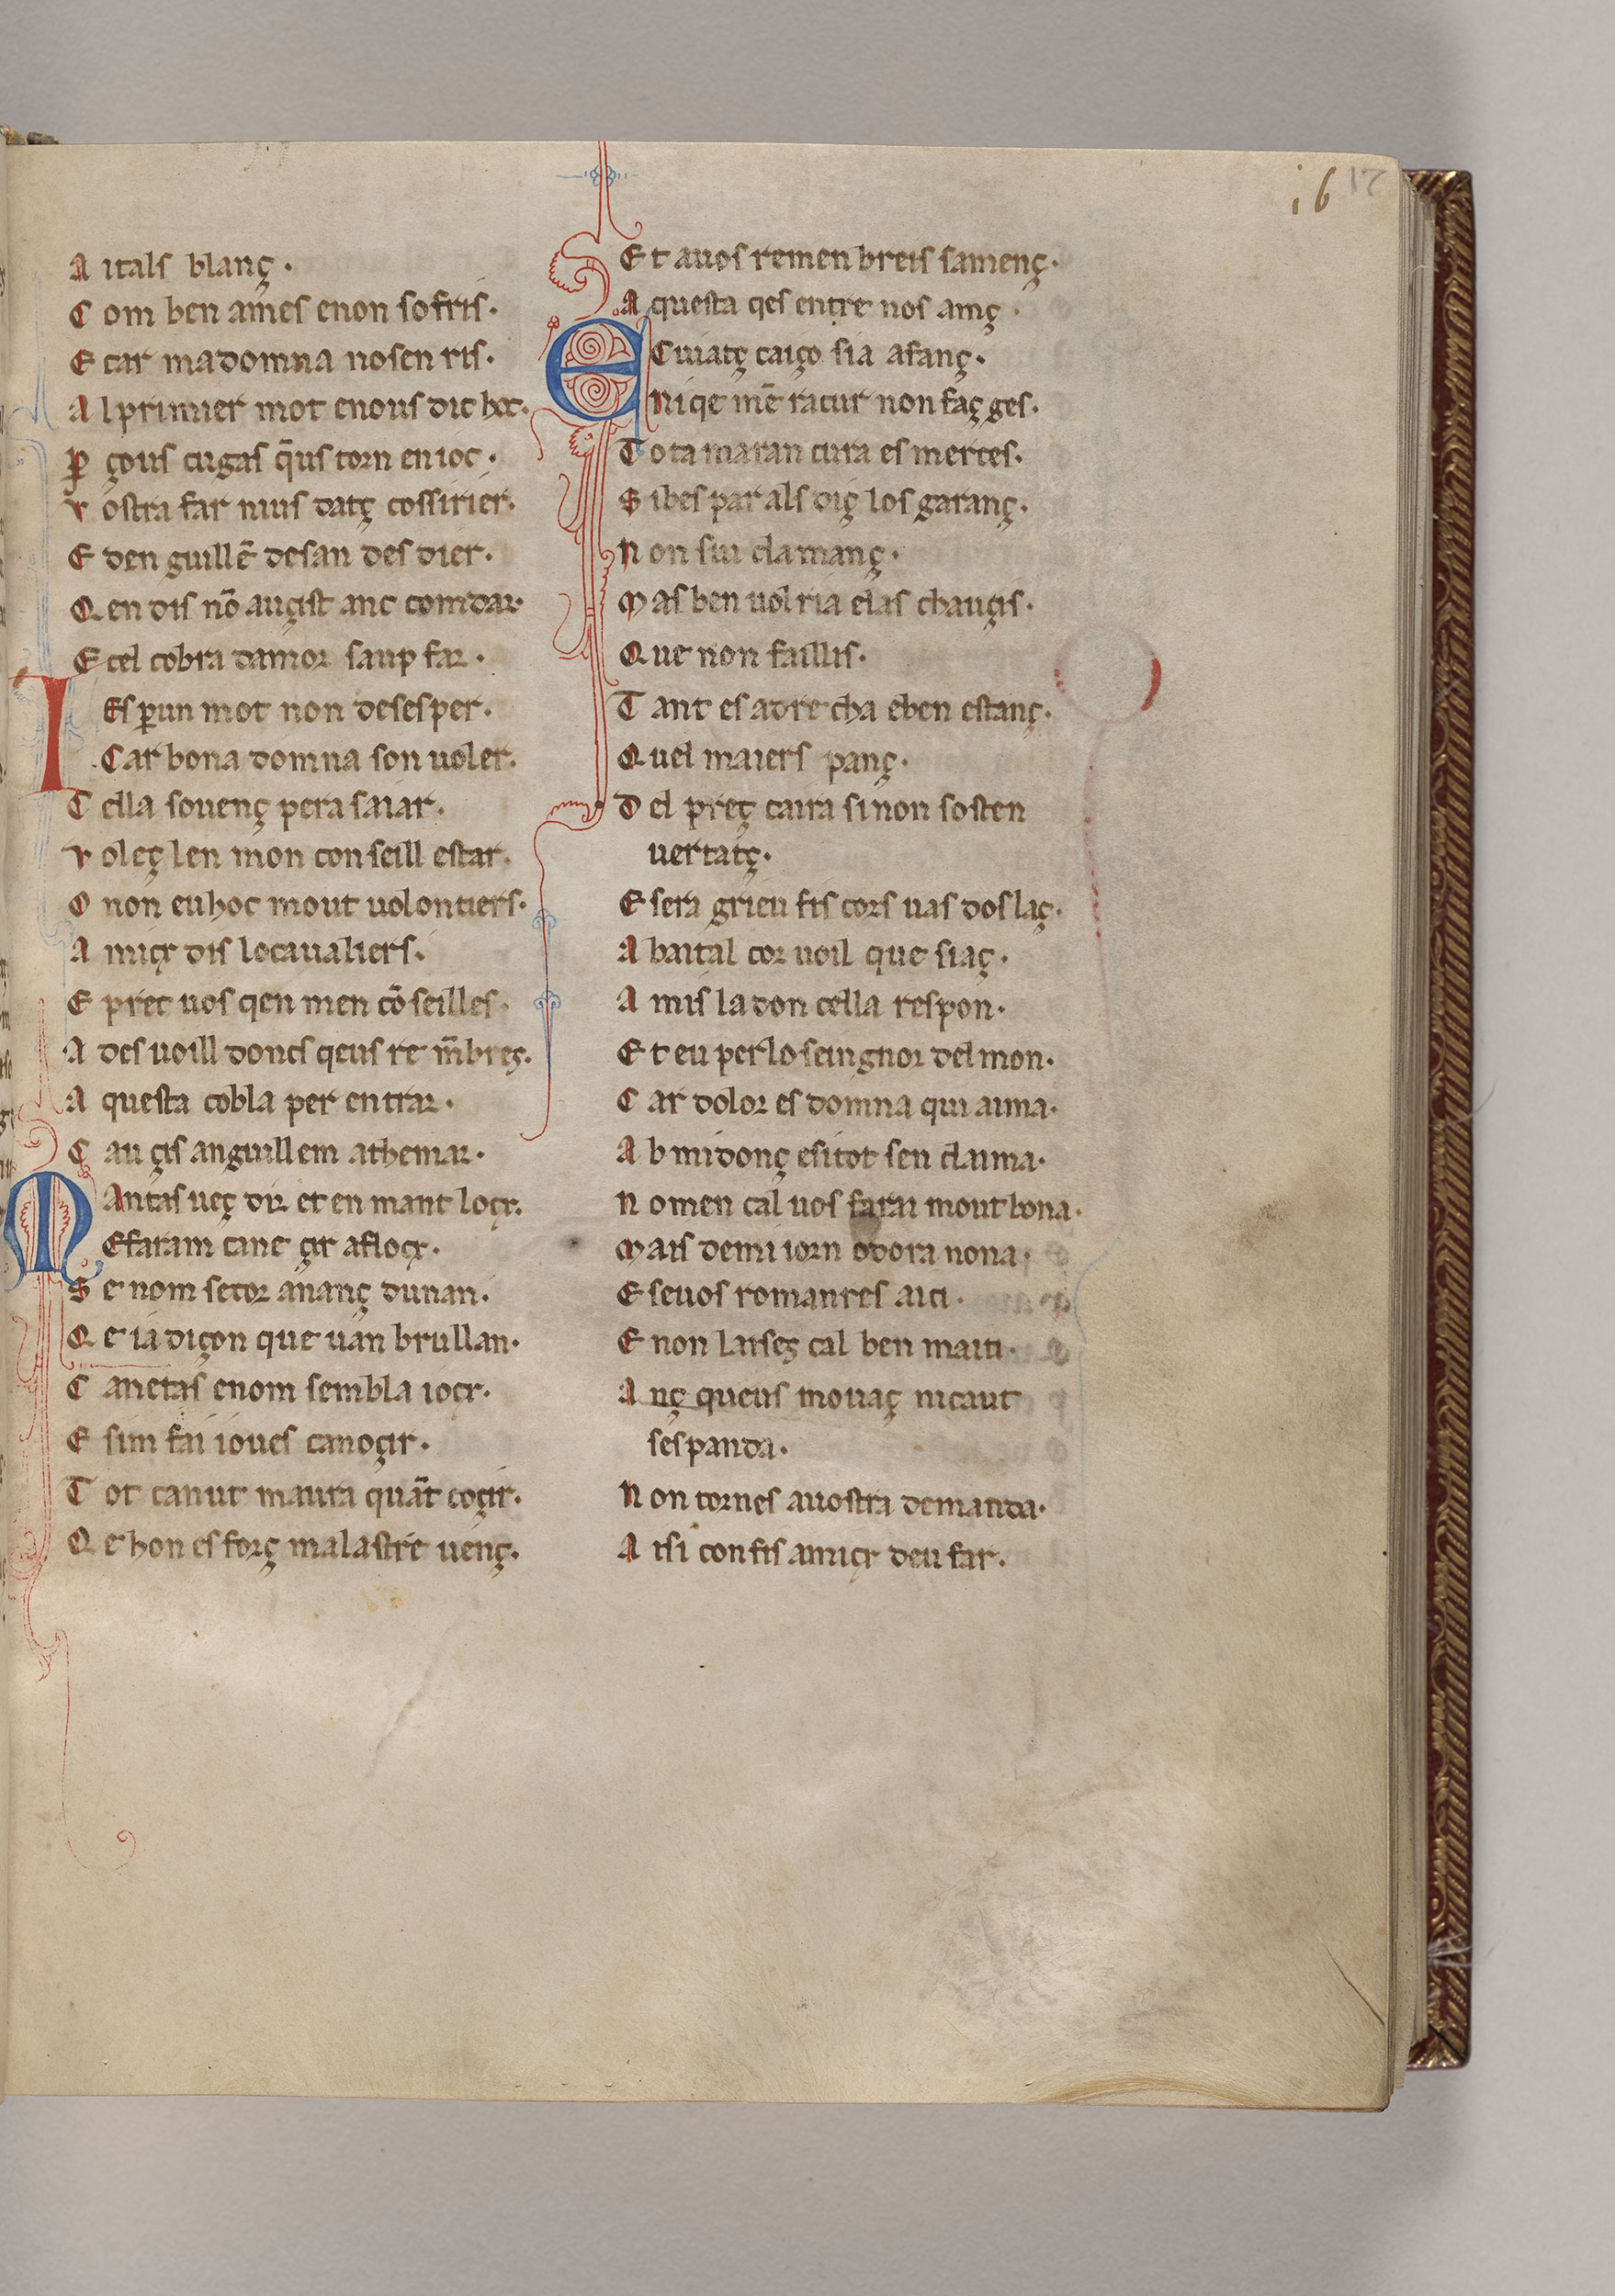 i6 17
A itals blanç ·
C om ben ames enon sofris ·
E car madomna nosen ris ·
A l primier mot enous dic hoc ·
ꝑ çous cugas q̃us torn en ioc ·
V ostra far nius datç cossirier ·
E den guillẽ desan des dier ·
Q en dis nõ auçist anc comdar
E cel cobra damor saup far ·
I Es ꝑun mot non desesper ·
Car bona domna son uoler ·
T ella souenç pera saiar ·
V oleç len mon conseill estar ·
O non eu hoc mout uolontiers ·
A micx dis lo caualiers ·
E prec uos qen men cõseilles ·
A des uoill doncs qeus re m̃breç ·
A questa cobla per entrar ·
C au çis anguillem athemar ·
M Antas ueç dir et en mant locx ·
E faram canc çir aflocx ·
S e nom setor ananç dunan ·
Q e ia diçon que uan brullan ·
C anetas enom sembla iocx ·
E sim fai ioues canoçir ·
T ot canut maura quãt coçir ·
Q e hon esforç malastre uenç ·
E t auos remenbreis samenç ·
A questa qes entre nos amç ·
E Cuiatç caiço sia afanç ·
Ni qe mẽ racur non faç ges ·
T ota maran cura es merces ·
S ibes par als diç los garanç ·
N on sui clamanç ·
M as ben uolria elas chauçis ·
Q ue non faillis ·
T ant es adrecha eben estanç ·
Q uel maiers panç ·
D el preç caira sinon sosten
uertatç ·
E sera grieu fis cors uas dos laç ·
A baital cor uoil que siaç ·
A mis la don cella respon ·
E t eu per lo seingnor del mon ·
C ar dolor es domna qui aima ·
A b midonç esitot sen clama ·
N omen cal uos farai mout bona ·
M ais demi iorn odora nona ·
E seuos romanres aici ·
E non laises cal ben maiti ·
A nç queus mouaç nicaut
sespanda ·
N on tornes auostra demanda ·
A isi con fis amicx deu far ·